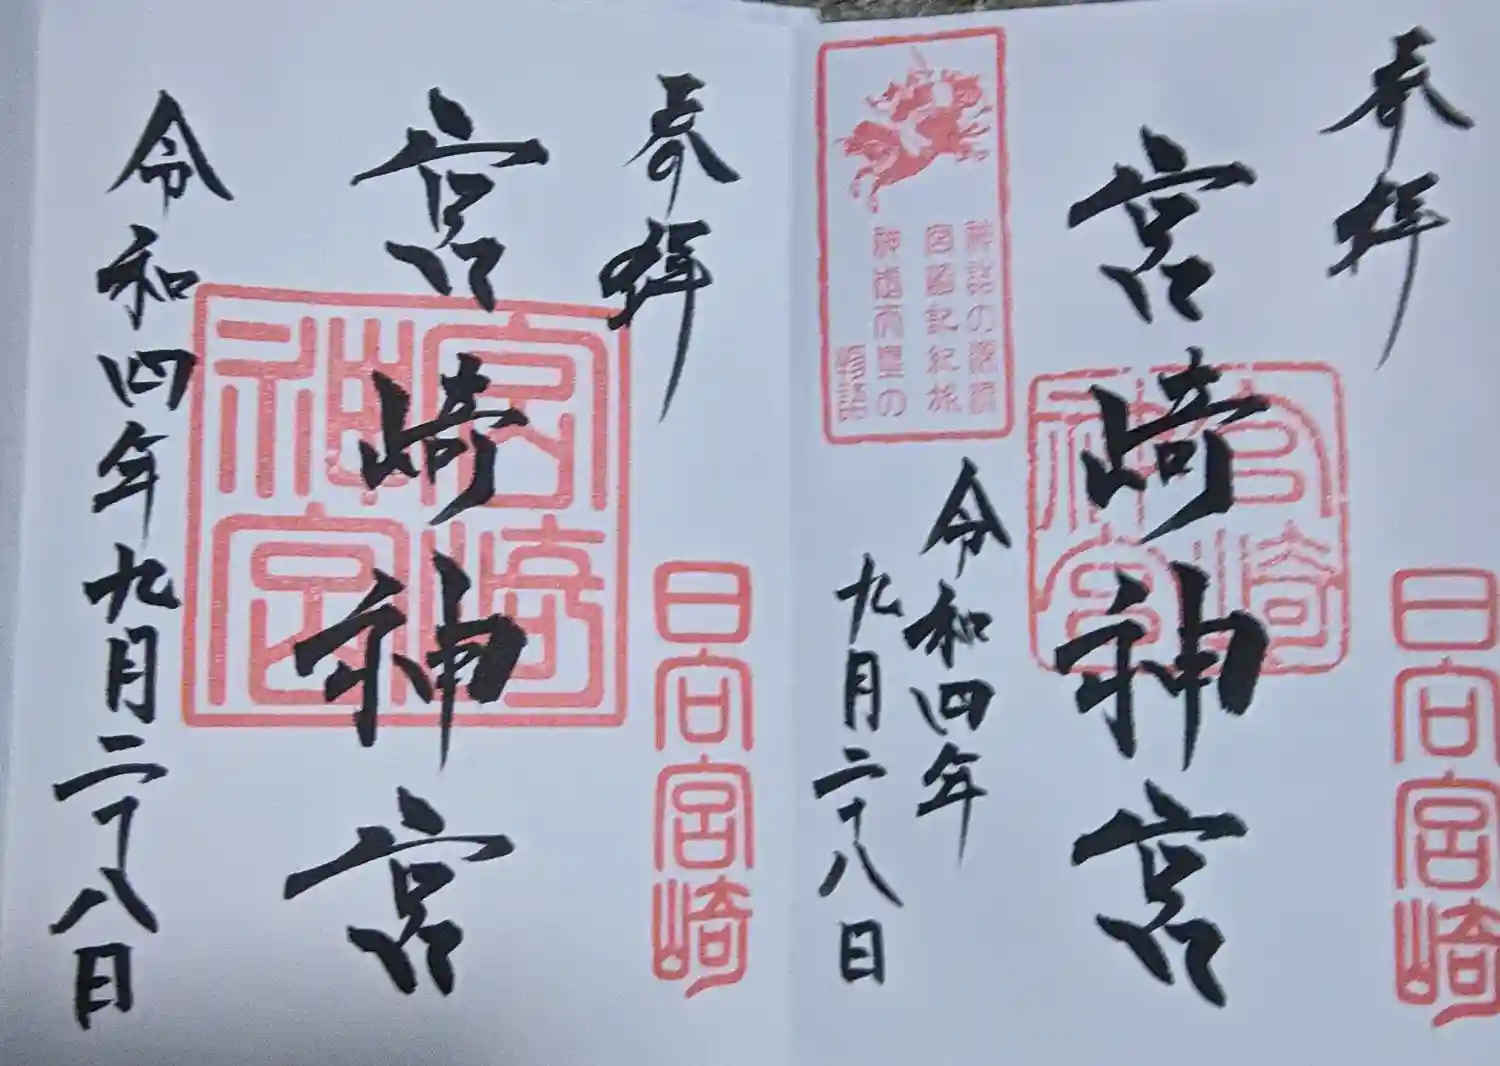 奉拝
日向宮崎
宮崎神宮
宮崎神宮
令和四年
九月二十八日
神話の源流
宮崎記紀旅
神武天皇の
物語
奉拝
日向宮崎
宮崎神宮
宮崎神宮
令和四年九月二十八日